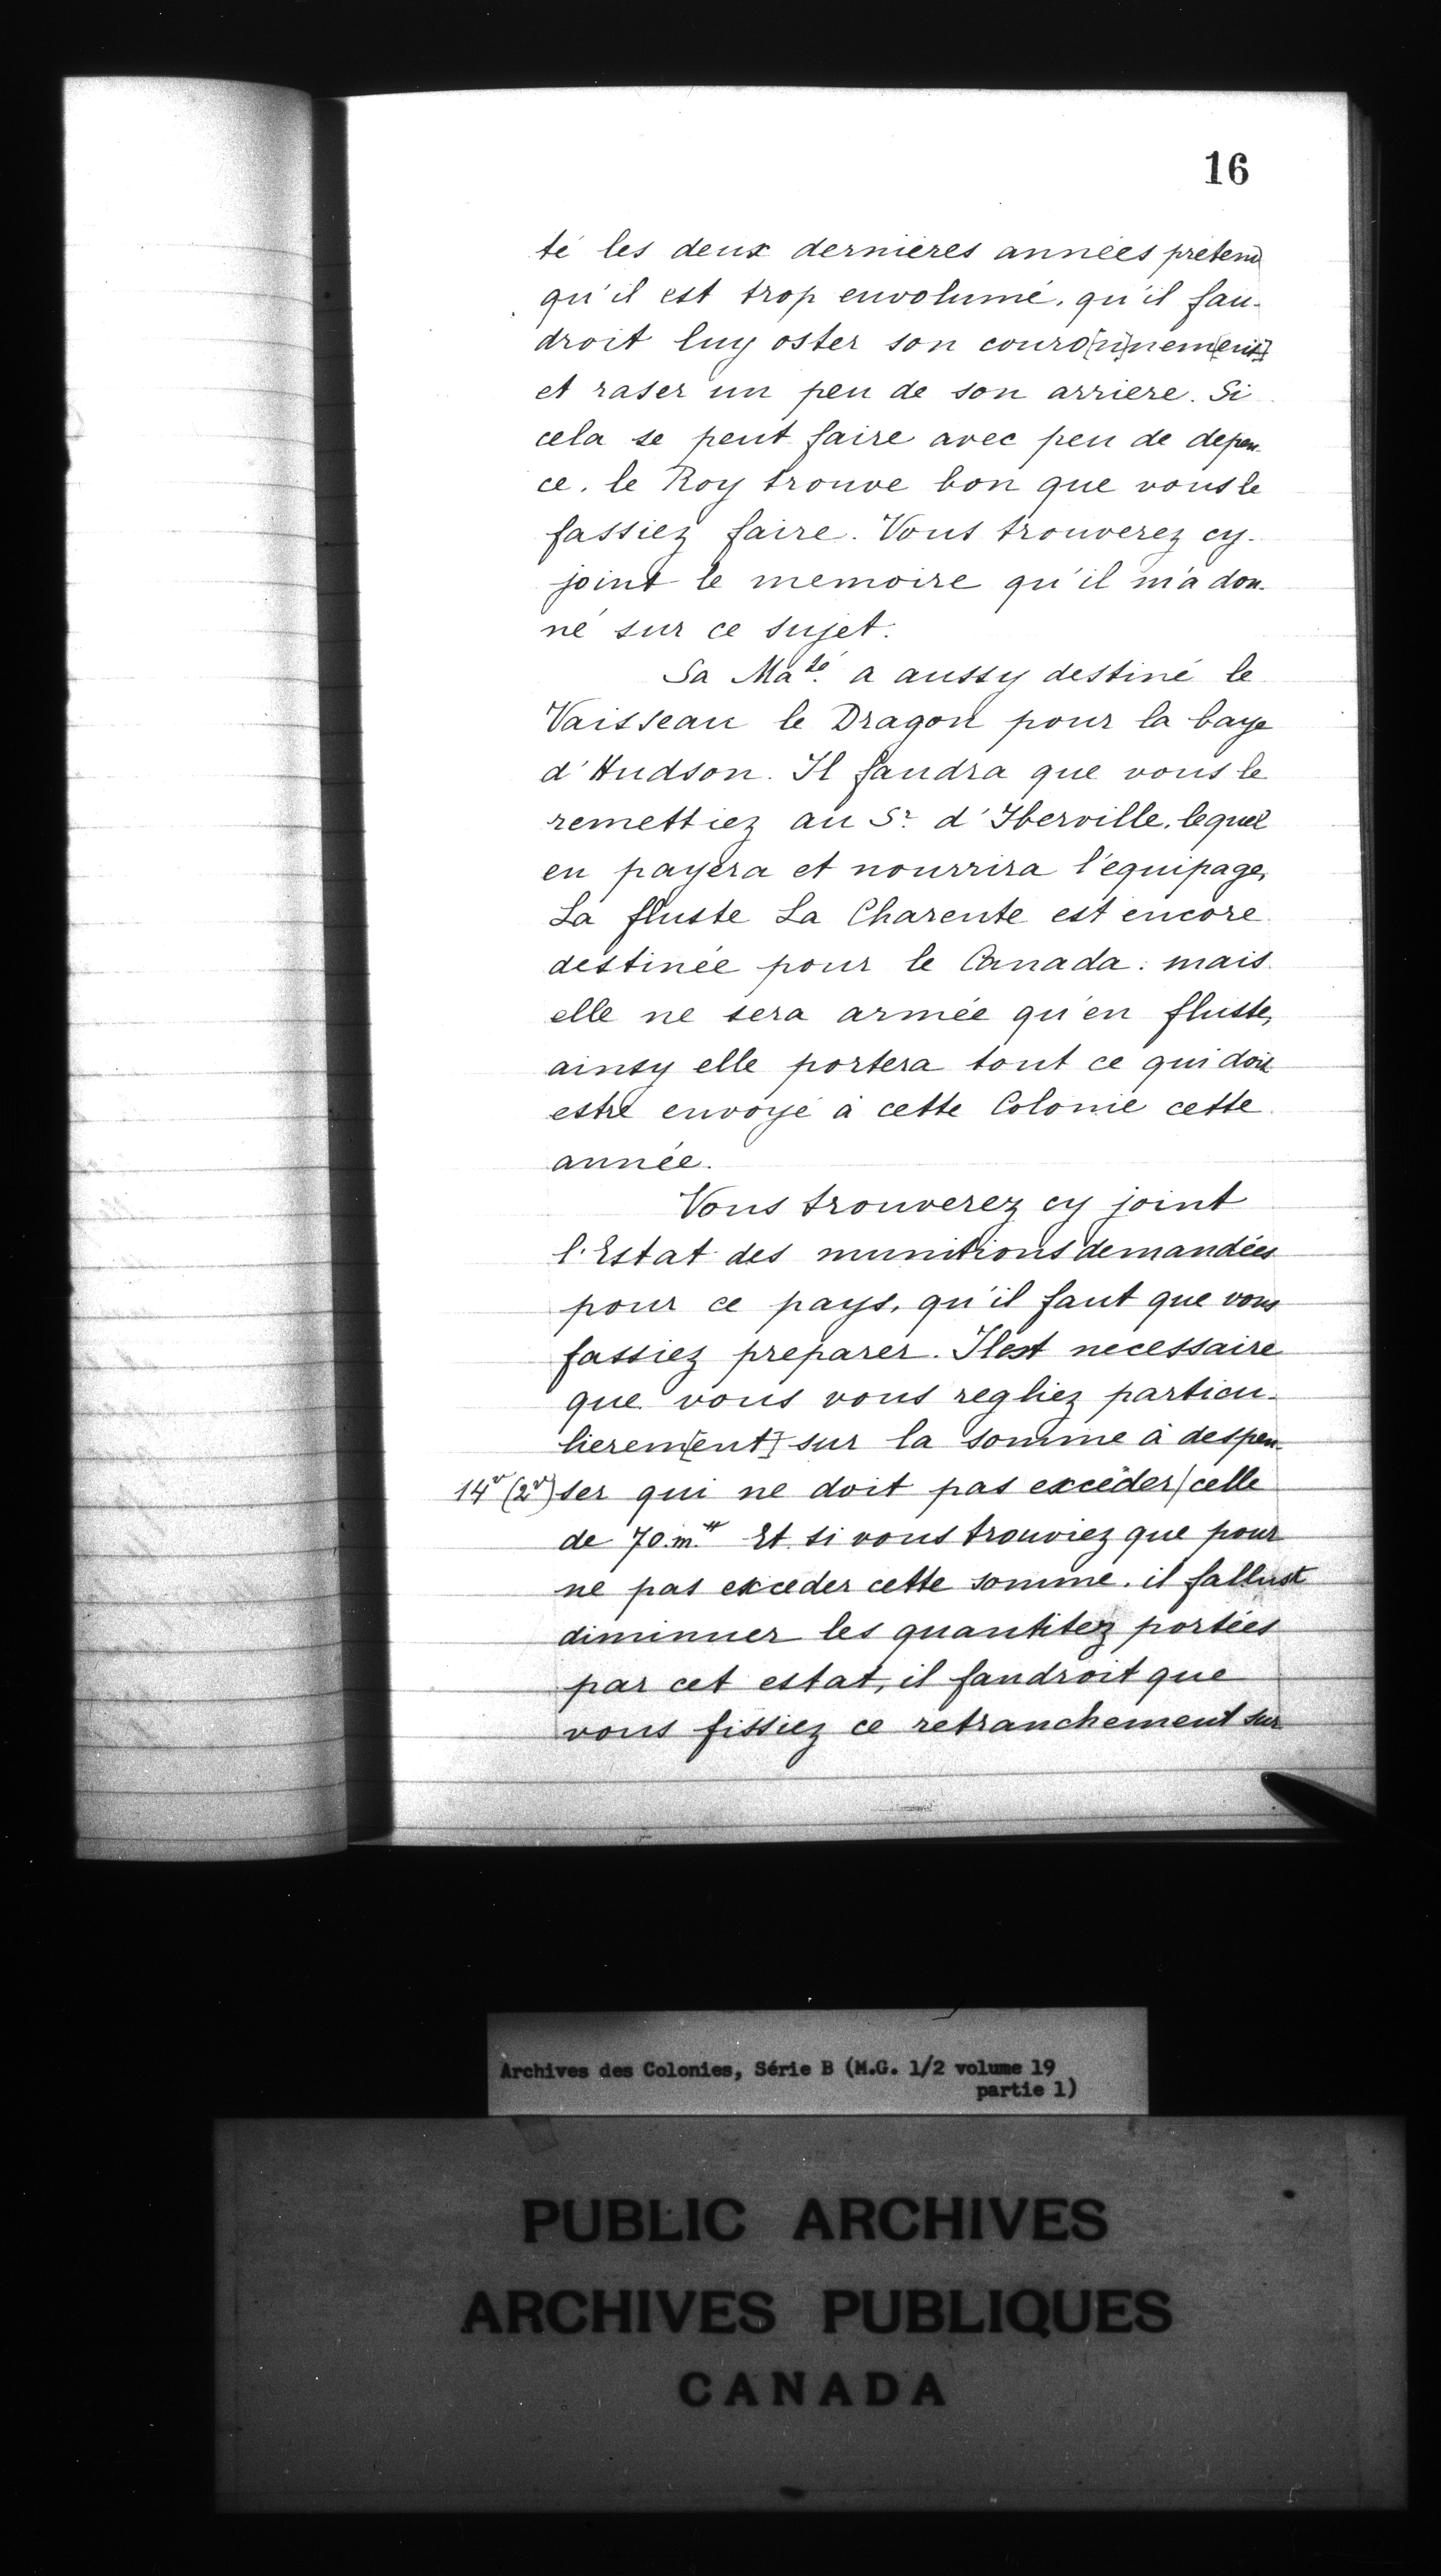 16
té les deux dernieres années pretend
qu'il est trop envolumé, qu'il fau-
droit luy oster son couro[n]nem[ent]
et raser un peu de son arriere. Si
cela se peut faire avec peu de depen-
ce, le Roy trouve bon que vous le
fassiez faire. Vous trouverez cy-
joint le memoire qu'il m'a don-
né sur ce sujet.
Sa Maté. a aussy destiné le
Vaisseau le Dragon pour la baye
d'Hudson. Il faudra que vous le
remettiez au Sr. d'Iberville, lequel
en payera et nourrira l'équipage,
La fluste La Charente est encore
destinée pour le Canada: mais
elle ne sera armée qu'en fluste,
ainsy elle portera tout ce qui doit
estre envoyé à cette Colonie cette
année.
Vous trouverez cy joint
l'Estat des munitions demandées
pour ce pays, qu'il faut que vous
fassiez preparer. Il est necessaire
que vous vous regliez particu-
lierem[ent] sur la somme à despen-
14v (2v) ser qui ne doit pas excéder/celle
de 70.m.# Et si vous trouviez que pour
ne pas exceder cette somme, il fallust
diminuer les quantitez portées
par cet estat, il faudroit que
vous fissiez ce retranchement sur
Archives des Colonies, Série B (M.G. 1/2 volume 19
partie 1)
PUBLIC ARCHIVES
ARCHIVES PUBLIQUES
CANADA